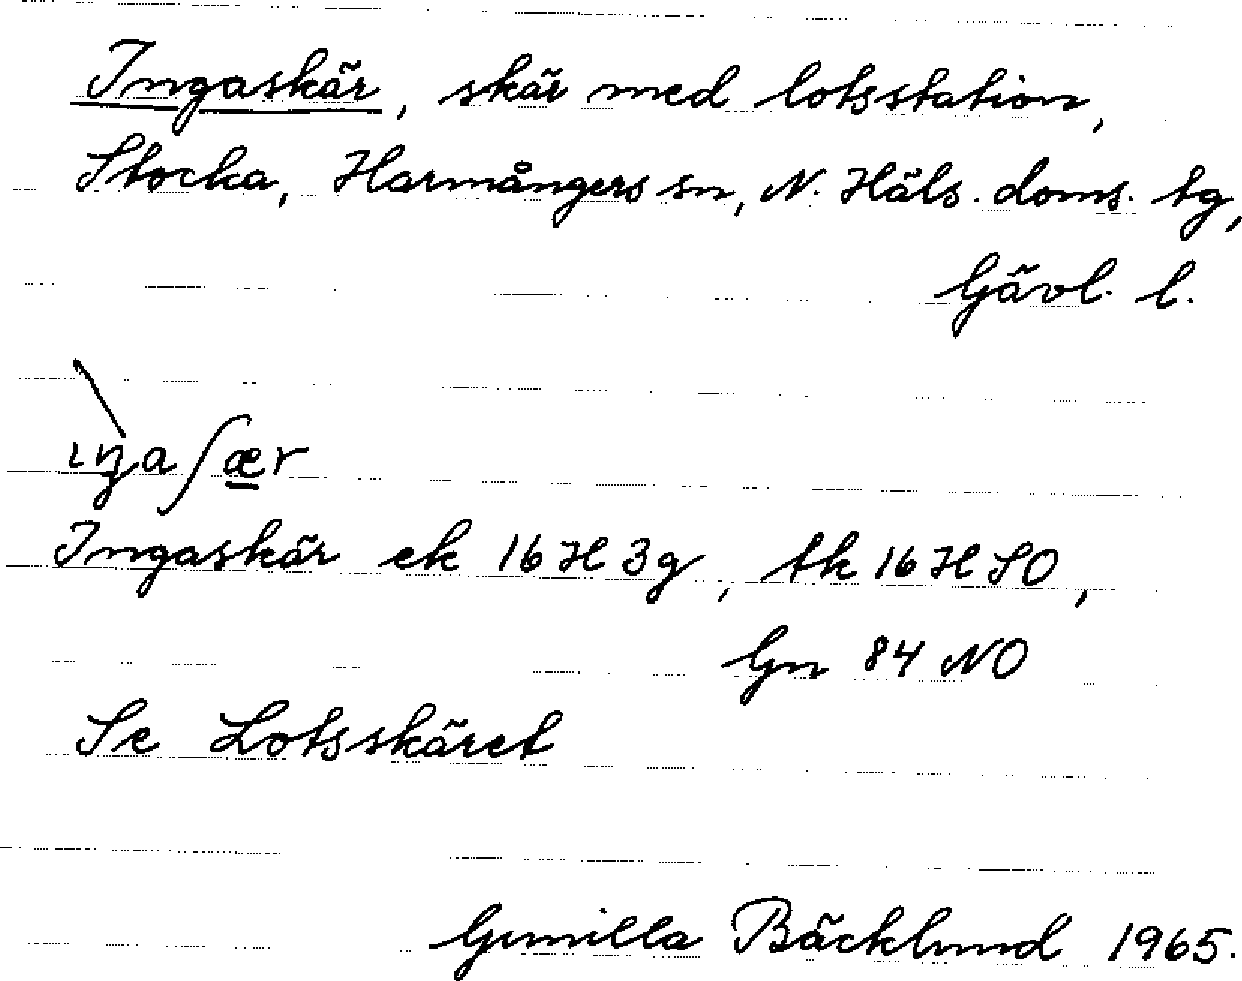 Ingaskär, skär med lotsstation,
Stocka, Harmångers sn, N. Häls. doms. tg,
Gävl. l.
ıŋaʃæ̲r
Ingaskär ek 16 H 3g, tk 16 H SO,
Gn 84 NO
Se Lotsskäret
Gunilla Bäcklund 1965.